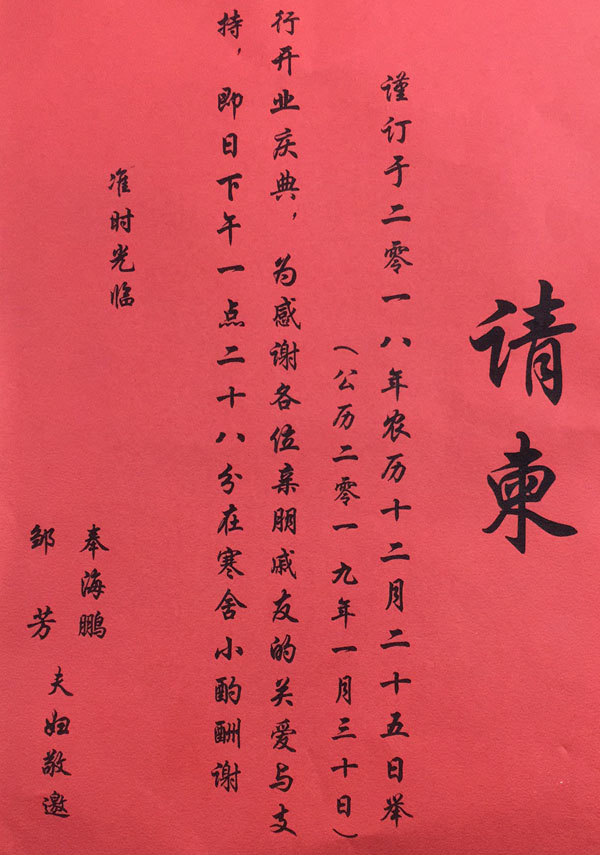 请柬
谨订于二零一八年农历十二月二十五日举
(公历二零一九年一月三十日)
行开业庆典，为感谢各位亲朋戚友的关爱与支
持，即日下午一点二十八分在寒舍小酌酬谢
准时光临
奉海鹏
邹芳
夫妇敬邀